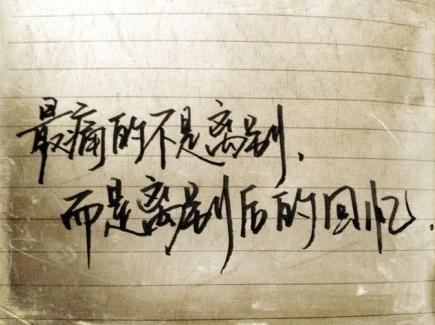 最痛的不是离别,
而是离别后的回忆.